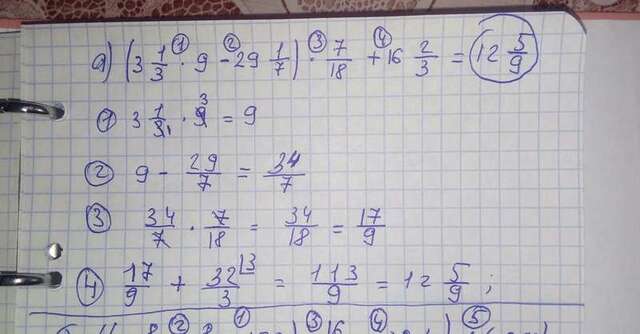 a) (3 1/3 · 9 - 29 1/7) · 7/18 + 16 2/3 = 12 5/9
① 3 1/3 · 9 = 9
② 9 - 29/7 = 34/7
③ 34/7 · 7/18 = 34/18 = 17/9
④ 17/9 + 32/3 = 113/9 = 12 5/9 ;